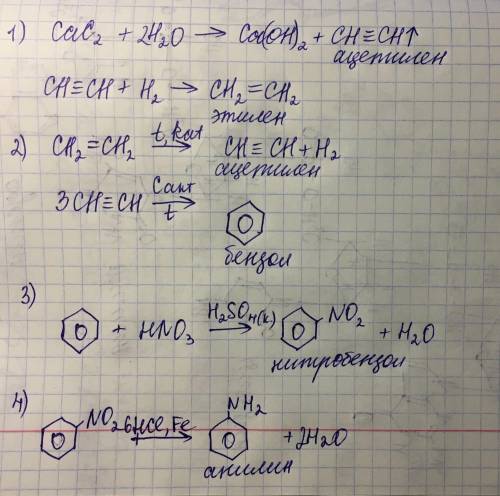 1) CaC₂ + 2H₂O → Ca(OH)₂ + CH≡CH↑
ацетилен
CH≡CH + H₂ → CH₂=CH₂
этилен
2) CH₂=CH₂ t, kat → CH≡CH + H₂
ацетилен
3CH≡CH Cакт t →
бензол
3)
+ HNO₃ H₂SO₄(к) → NO₂ + H₂O
нитробензол
4)
NO₂ 6HCl, Fe → NH₂ + 2H₂O
анилин